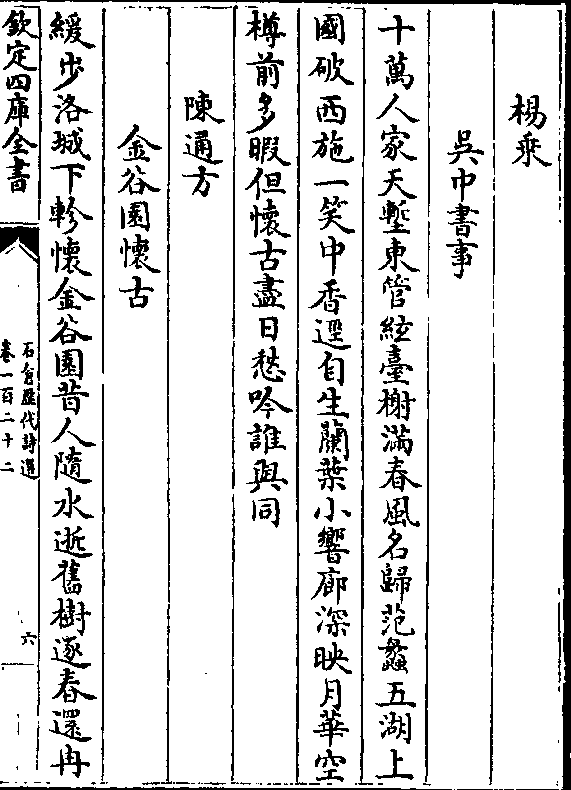 楊乘
吳中書事
十萬人家天塹東管絃臺榭滿春風名歸范蠡五湖上
國破西施一笑中香逕自生蘭葉小響廊深映月華空
樽前多暇但懷古盡日愁吟誰與同
陳通方
金谷園懷古
緩步洛城下軫懷金谷園昔人隨水逝舊樹逐春還冉
欽定四庫全書
石倉歷代詩選
卷一百二十二
六